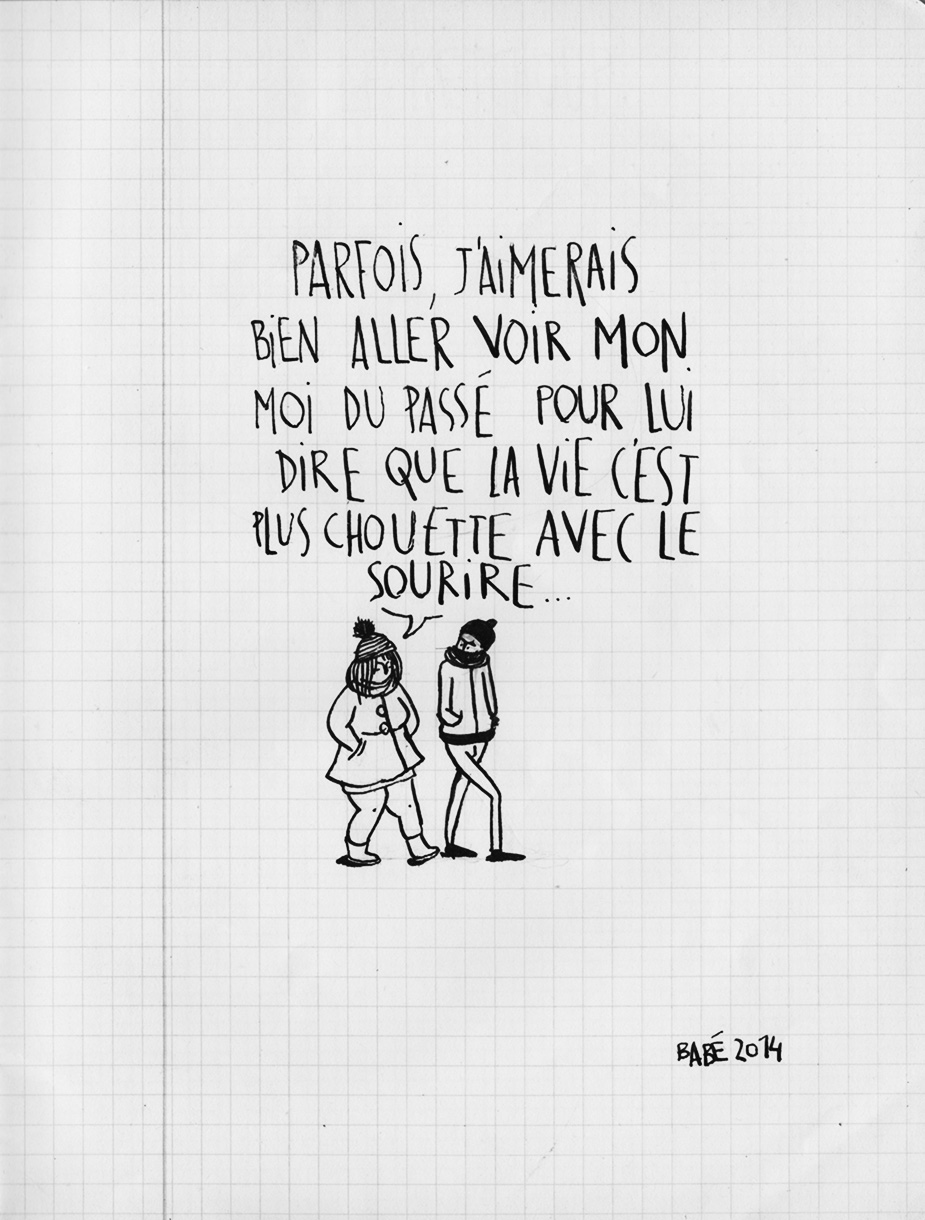 PARFOIS, J'AIMERAIS
BIEN ALLER VOIR MON
MOI DU PASSÉ POUR LUI
DIRE QUE LA VIE C'EST
PLUS CHOUETTE AVEC LE
SOURIRE...
BABÉ 2014